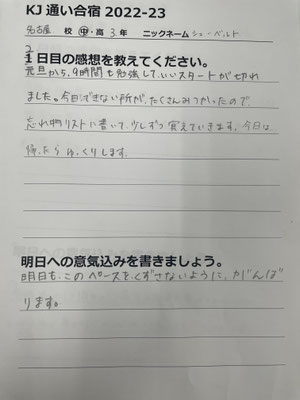 KJ 通い合宿 2022-23
名古屋 校 中・高 3 年 ニックネーム シューベルト
2
1 日目の感想を教えてください。
元旦から、9時間も勉強して、いいスタートが切れ
ました。今日できない所が、たくさんみつかったので
忘れ物リストに書いて、少しずつ覚えていきます。今日は
帰ったらゆっくりします。
明日への意気込みを書きましょう。
明日も、このペースをくずさないように、がんば
ります。